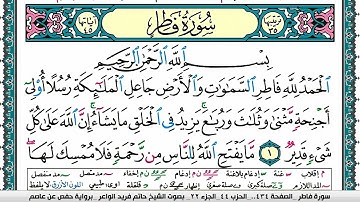 سُورَةُ فَاطِرٍ
بِسْمِ اللَّهِ الرَّحْمَٰنِ الرَّحِيمِ
الْحَمْدُ لِلَّهِ فَاطِرِ السَّمَٰوَٰتِ وَالْأَرْضِ جَاعِلِ الْمَلَٰٓئِكَةِ رُسُلًا أُو۟لِىٓ
أَجْنِحَةٍ مَّثْنَىٰ وَثُلَٰثَ وَرُبَٰعَ ۚ يَزِيدُ فِى الْخَلْقِ مَا يَشَآءُ ۚ إِنَّ اللَّهَ عَلَىٰ كُلِّ
شَىْءٍ قَدِيرٌ ١ مَّا يَفْتَحِ اللَّهُ لِلنَّاسِ مِن رَّحْمَةٍ فَلَا مُمْسِكَ لَهَا ۖ
سورة فاطر الصفحة ٤٣٤ الحزب ٤٤ الجزء ٢٢ بصوت الشيخ حاتم فريد الواعر برواية حفص عن عاصم